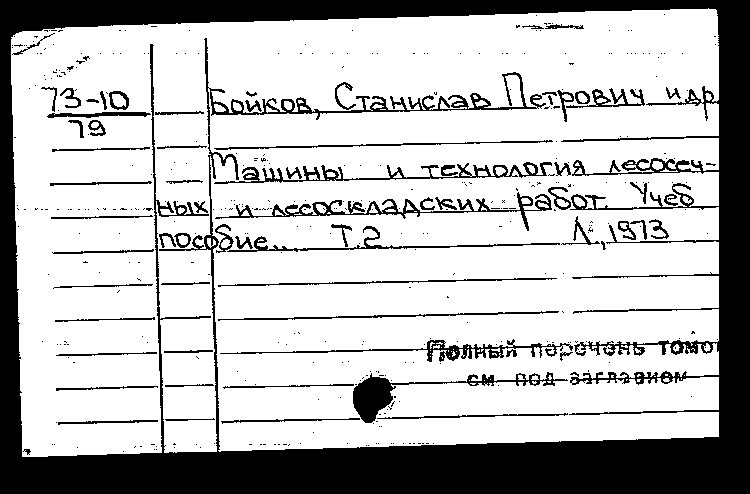 73-10
79
Бойков, Станислав Петрович и др.
Машины и технология лесосеч-
ных и лесоскладских работ. Учеб
пособие.. Т.2 Л., 1973
Полный перечень томов
см под заглавием